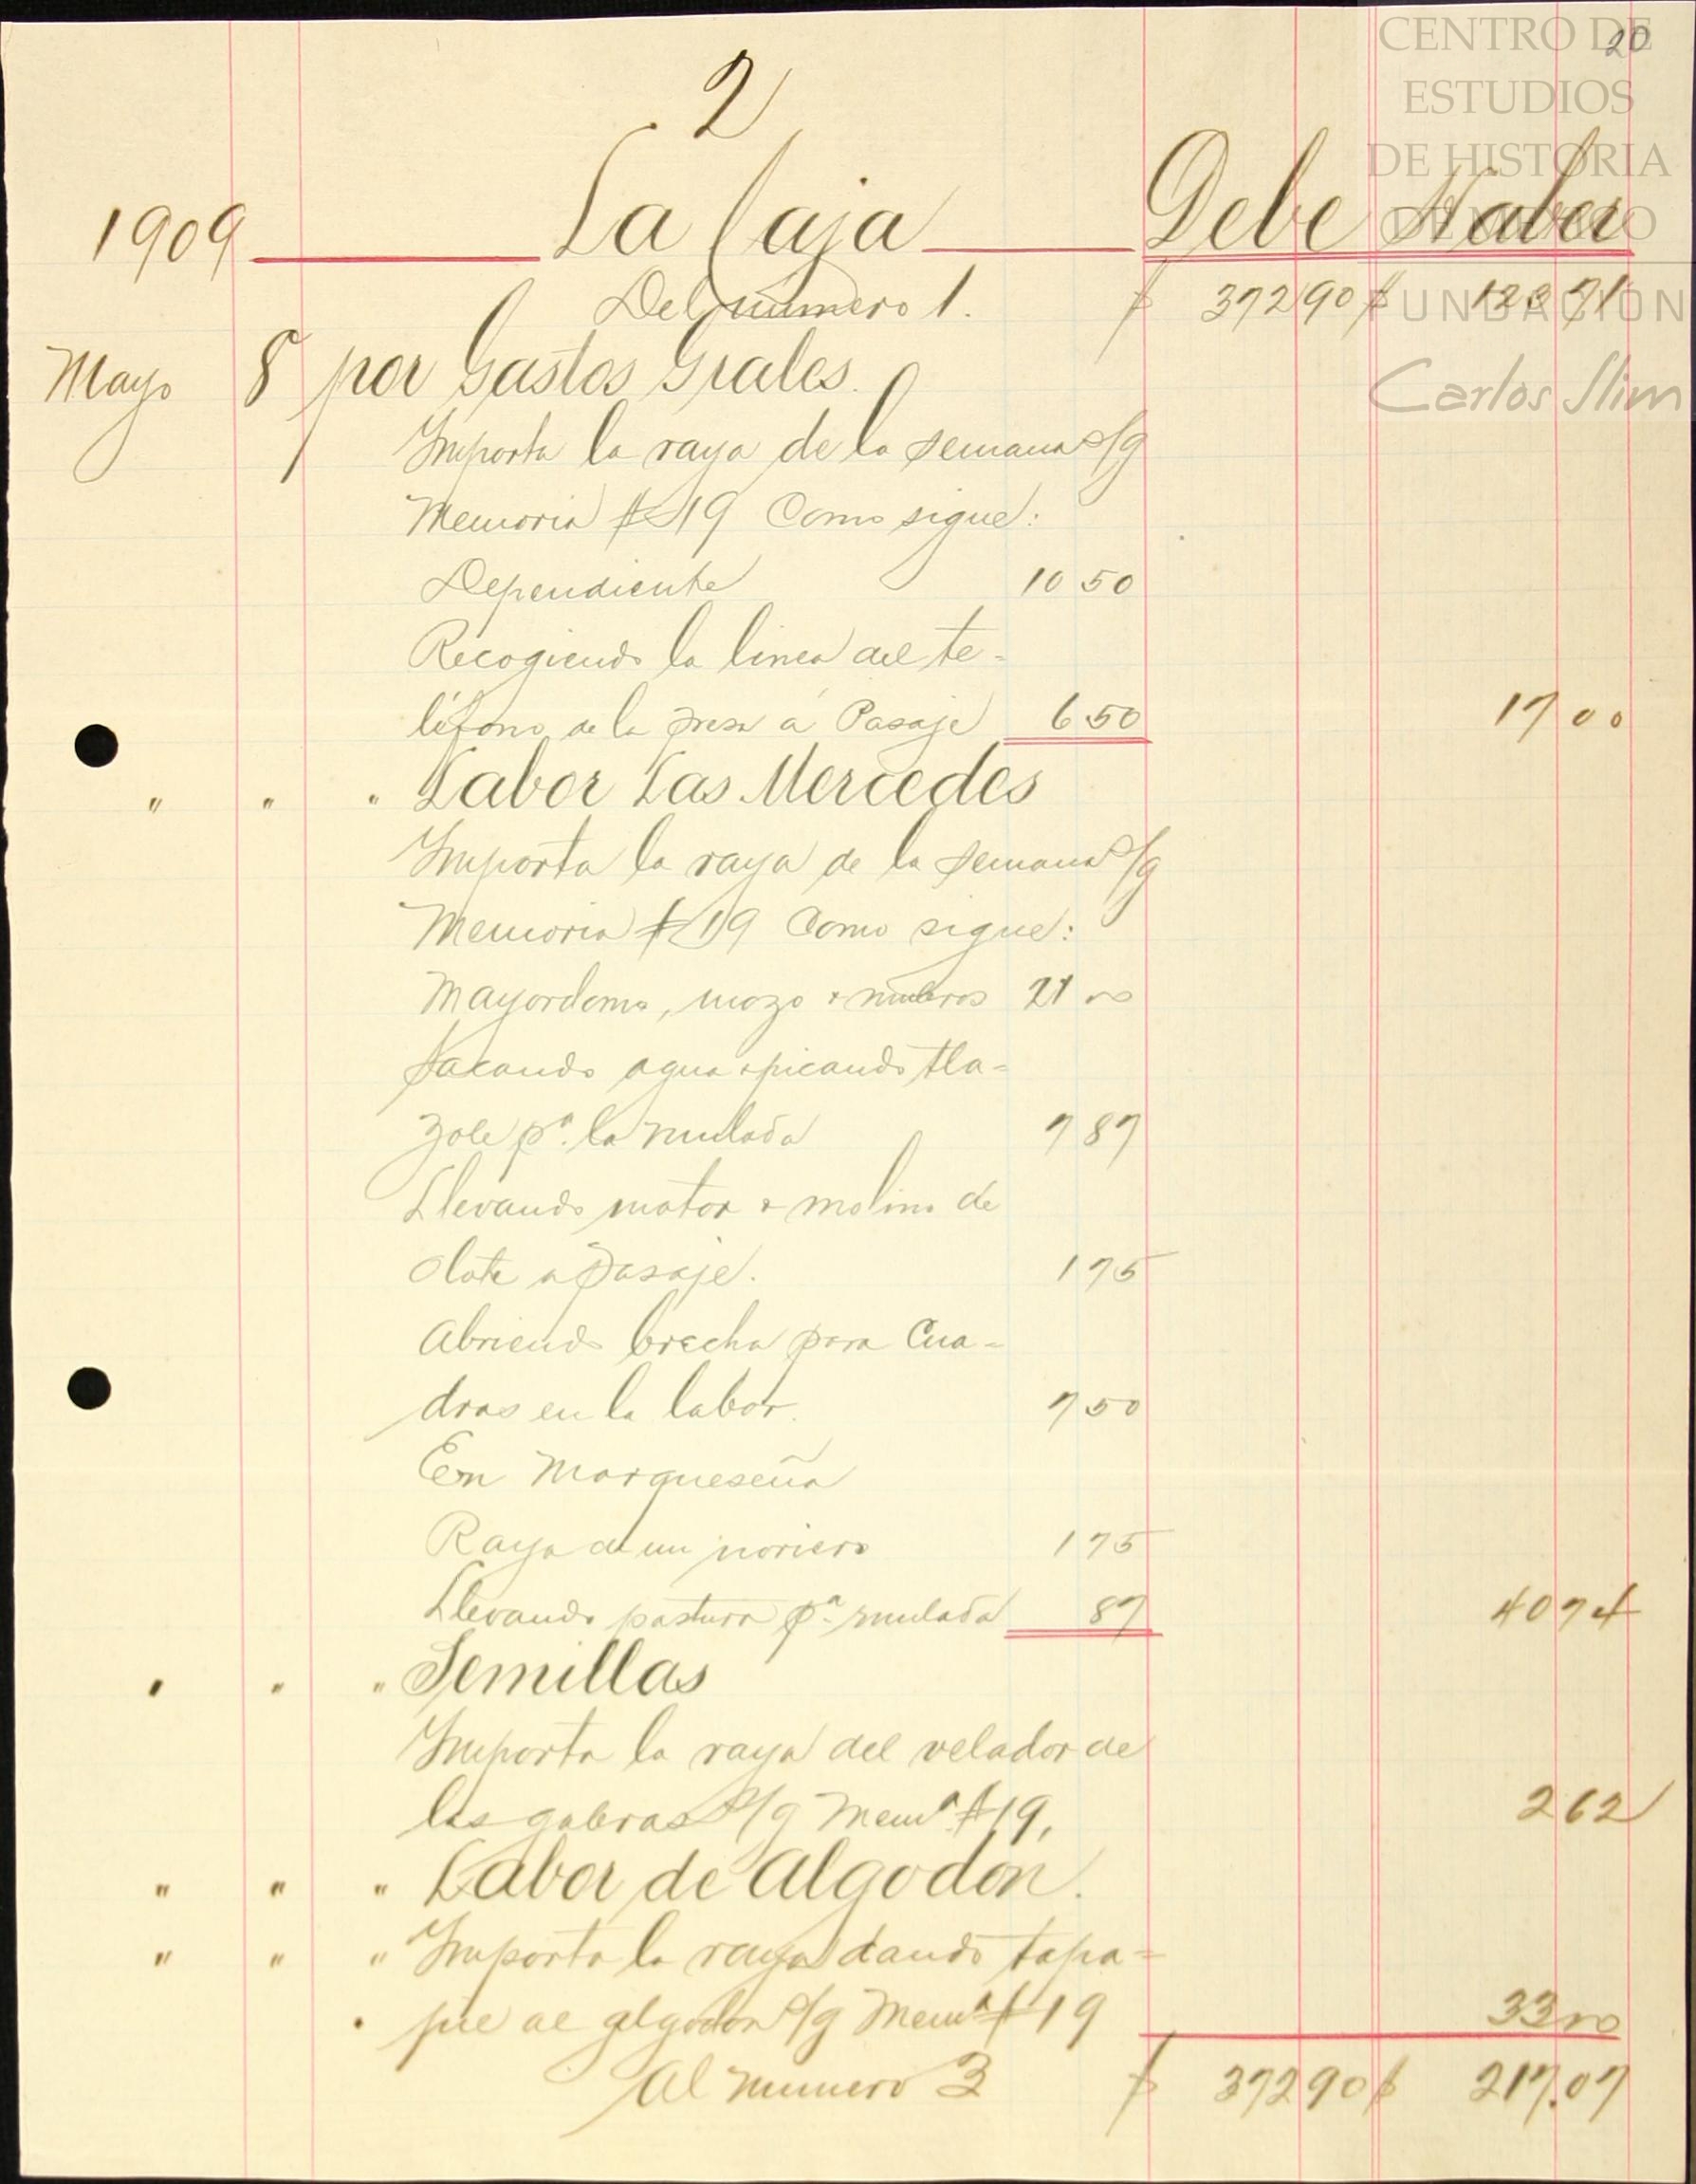 20
CENTRO DE
ESTUDIOS
DE HISTORIA
DE MEXICO
FUNDACION
Carlos Slim
2
1909 La Caja Debe Haber
Del número 1. $ 372 90 $ 123 71
Mayo 8 por Gastos Grales.
Importa la raya de la semana s/g
Memoria # 19 Como sigue:
Dependiente 10 50
Recogiendo la linea del te-
léfono de la presa á Pasaje 6 50 17 00
" " " Labor Las Mercedes
Importa la raya de la semana s/g
Memoria # 19 Como sigue:
Mayordomo, mozo y muleros 21 00
Sacando agua y picando tla-
zole pa. la mulada 7 87
Llevando motor y molino de
Olote a Pasaje. 1 75
Abriendo brecha para Cua-
dras en la labor. 7 50
En Marqueseña
Raya de un noriero 1 75
Llevando pastura pa. mulada 87 40 74
" " " Semillas
Importa la raya del velador de
las s/g Mema # 19, 2 62
" " " Labor de Algodon.
" " " Importa la raya dando tapa-
pie al algodon s/g Mema # 19 33 00
Al numero 3 $ 372 90 $ 217.07